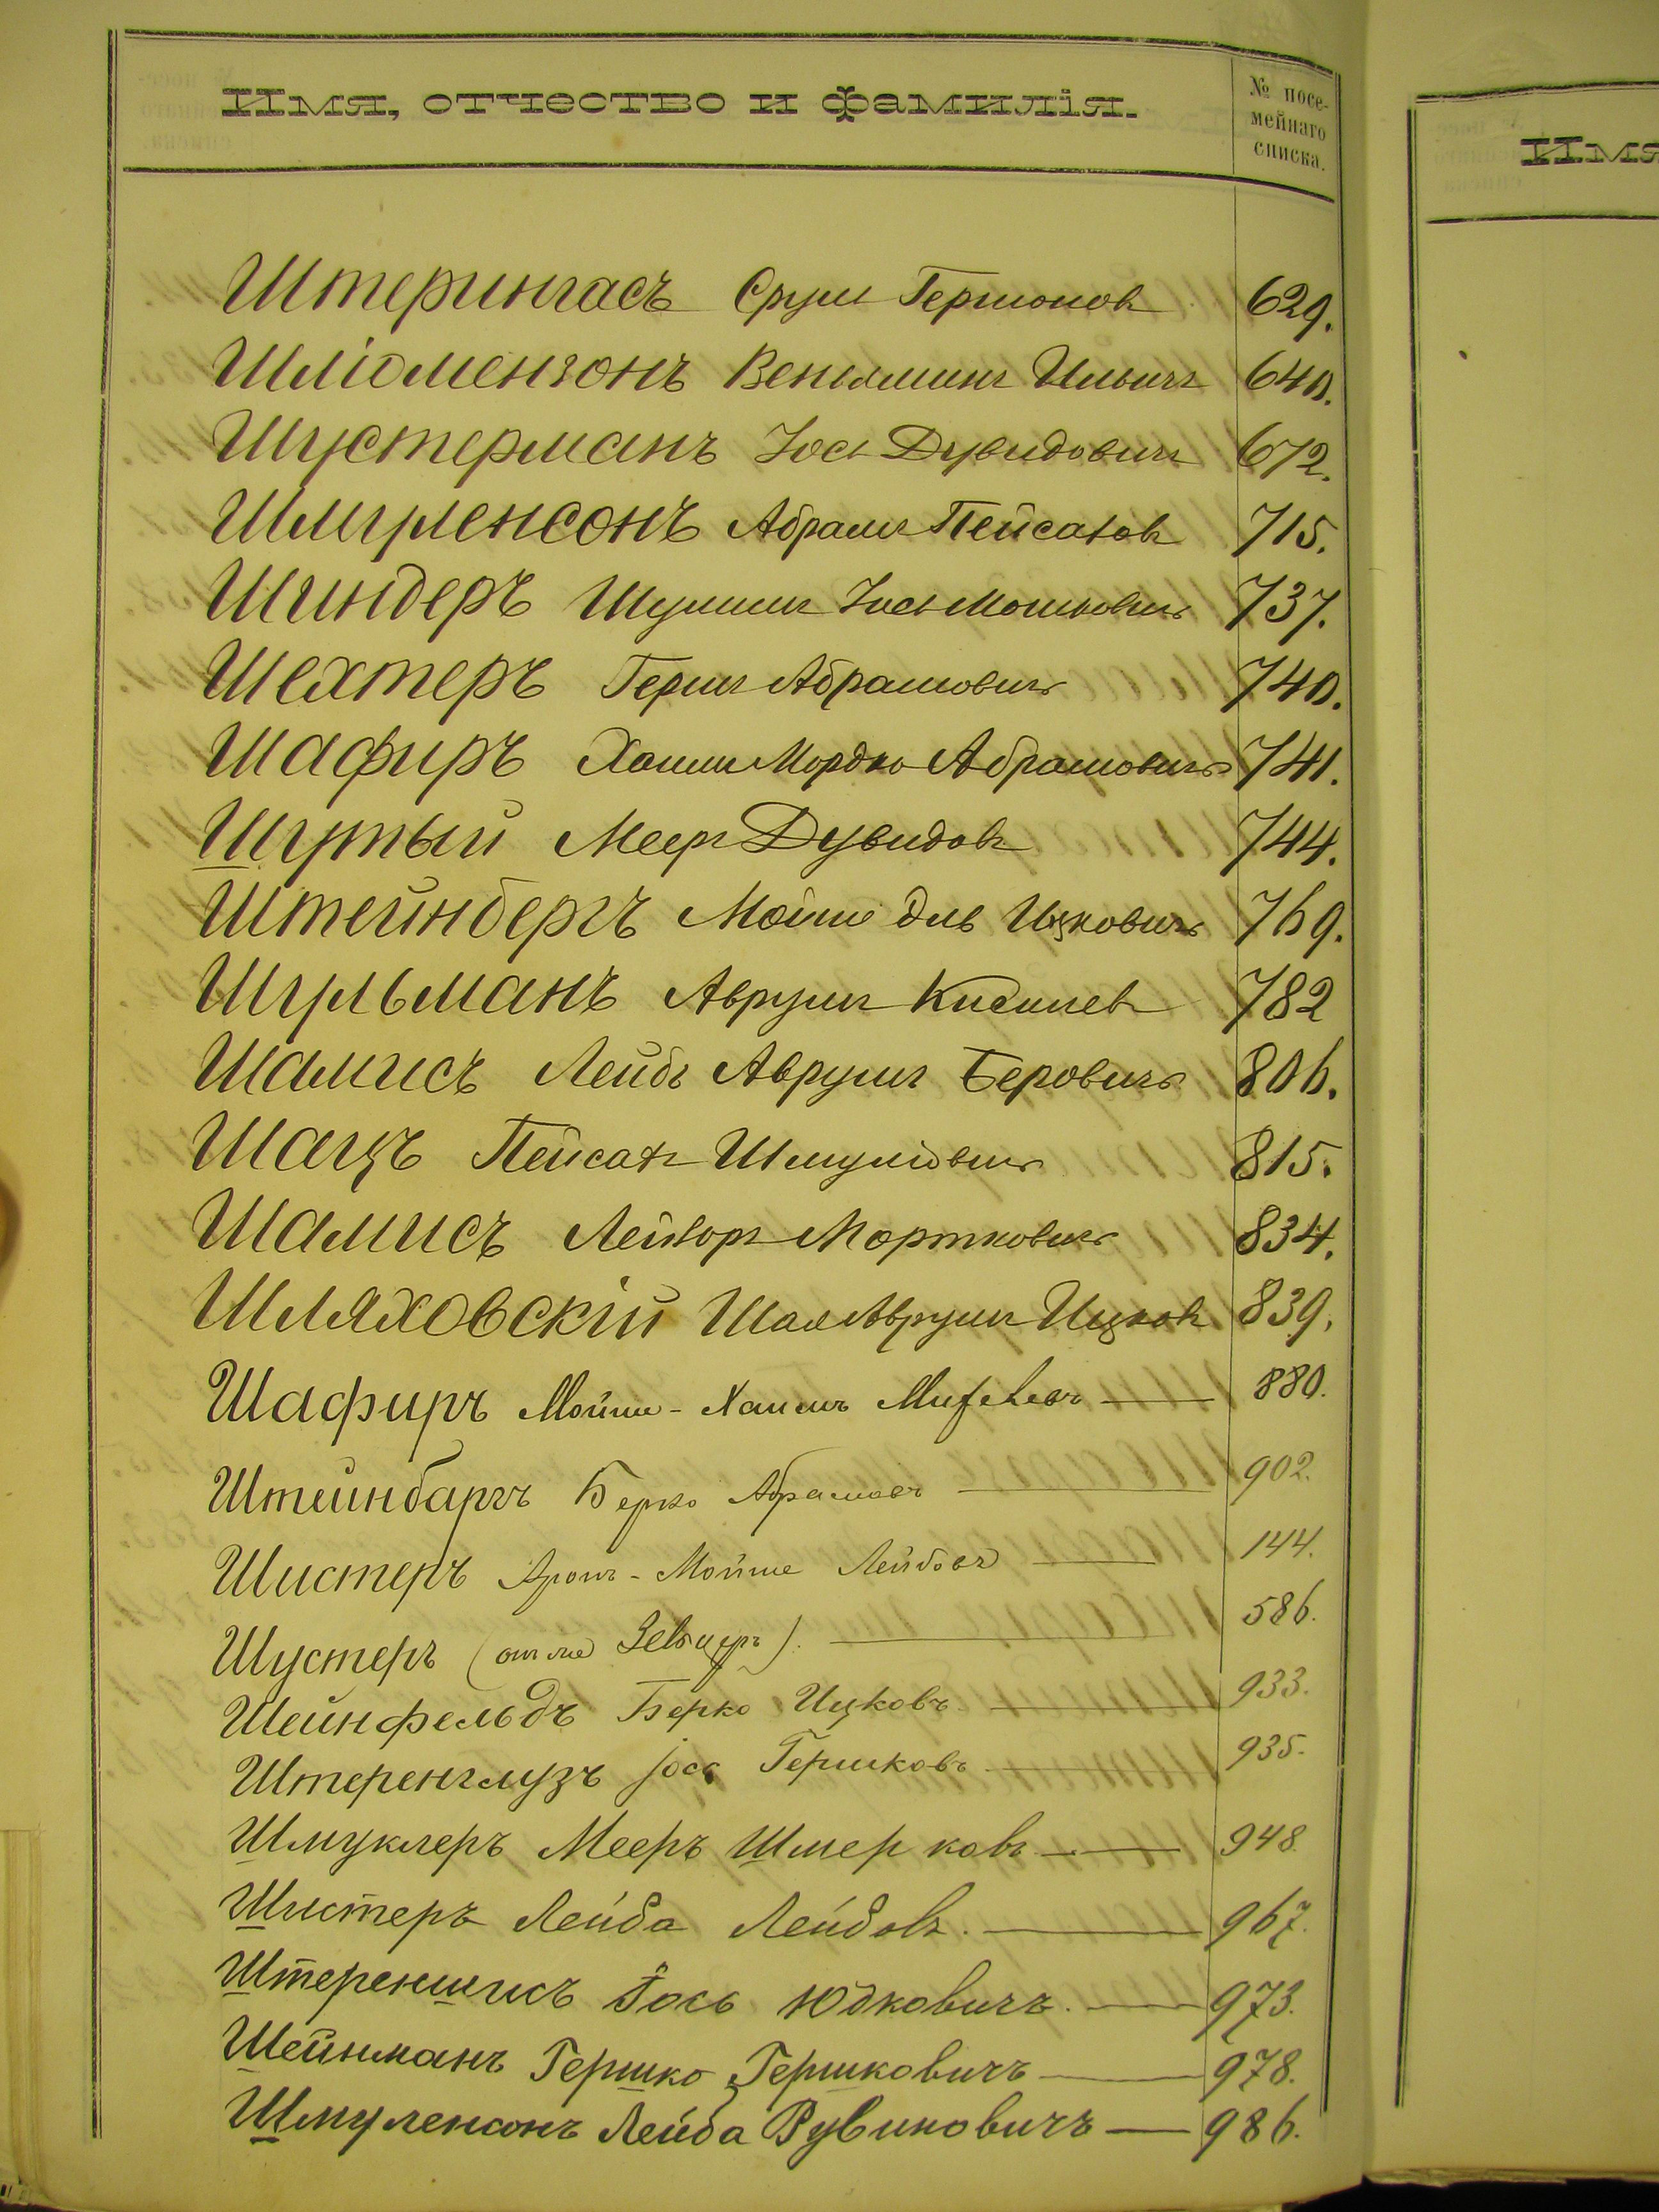 Имя, отчество и фамилія.
№ посе-
мейнаго
списка.
Штерингасъ Сруль Гершоновъ 629.
Шліомензонъ Веньяминъ Ильичъ 640.
Шустерманъ Іось Дувидовичъ 672.
Шмуленсонъ Абрамъ Пейсаховъ 715.
Шиндеръ Шулимъ Іось Мошковичъ 737.
Шехтеръ Гершъ Абрамовичъ 740.
Шафиръ Хаимъ Мордко Абрамовичъ 741.
Шутый Мееръ Дувидовъ 744.
Штейнбергъ Мойше Эль Ицковичъ 769.
Шульманъ Аврумъ Кисилевъ 782
Шамисъ Лейбъ Аврумъ Беровичъ 806.
Шацъ Пейсахъ Шмуловичъ 815.
Шамисъ Лейзоръ Мортковичъ 834.
Шляховскій Шая Аврумъ Ицковъ 839.
Шафиръ Мойше-Хаимъ Михелевъ 880.
Штейнбаргъ Берко Абрамовъ 902.
Шистеръ Аронъ-Мойше Лейбовъ 144.
Шустеръ (онъ же Зельцеръ). 586.
Шейнфельдъ Берко Ицковъ. 933.
Штеренглузъ Іось Гершковъ 935.
Шмуклеръ Мееръ Шмерковъ 948.
Шистеръ Лейба Лейбовъ. 967.
Штереншисъ Іось Юдковичъ. 973.
Шейнманъ Гершко Гершковичъ 978.
Шмуленсонъ Лейба Рувиновичъ 986.
Имя